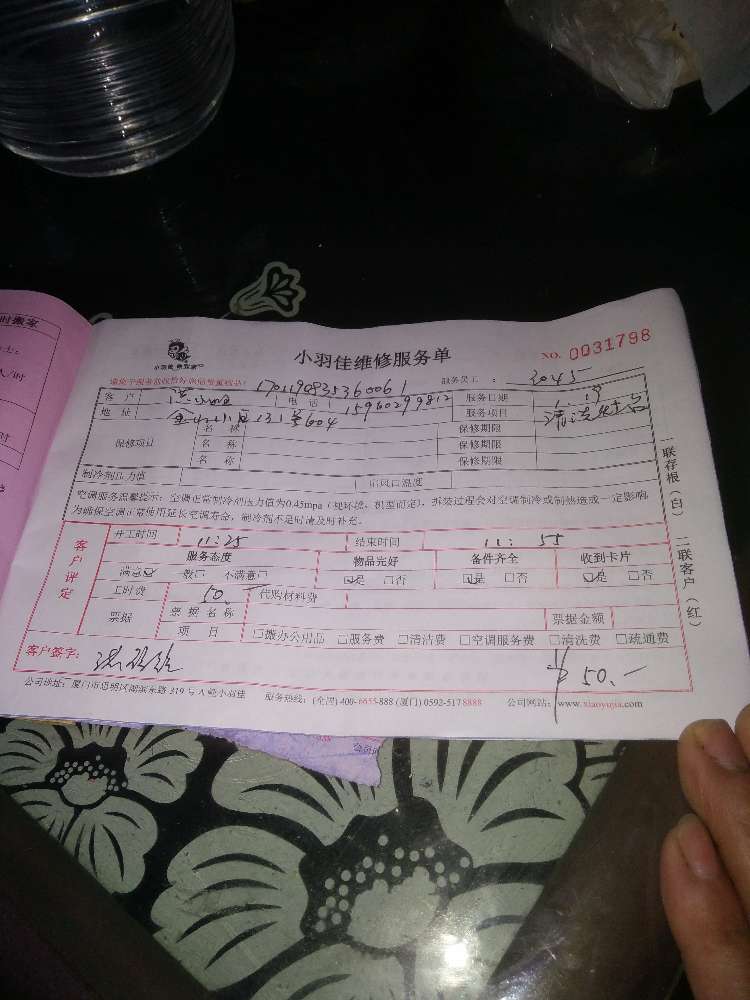 时搬家
人/时
小羽佳维修服务单
NO. 0031798
1701190835360061 服务员工: 3045
客 户 电 话 15960299812 服务日期 1.19
地 址 金山小区131号604 服务项目 清洗
保修项目 名 称 保修期限
名 称 保修期限
名 称 保修期限
制冷剂压力值 出风口温度
空调服务温馨提示:空调正常制冷剂压力值为0.45mpa(视环境、机型而定),拆装过程会对空调制冷或制热造成一定影响
为确保空调正常使用延长空调寿命,制冷剂不足时请及时补充。
一联存根(白) 二联客户(红)
客户评定
开工时间 11:25 结束时间 11:55
服务态度 物品完好 备件齐全 收到卡片
满意☑ 一般□ 不满意□ ☑是 □否 ☑是 □否 ☑是 □否
工时费 50.- 代购材料费
票据 票 据 名 称 票据金额
项 目 □搬办公用品 □服务费 □清洁费 □空调服务费 □清洗费 □疏通费
客户签字: ¥50.-
公司地址:厦门市思明区湖滨东路319号A 小羽佳 服务热线:(全国)400-6655-888 (厦门) 0592-5178888 公司网站:www.xiaoyujia.com